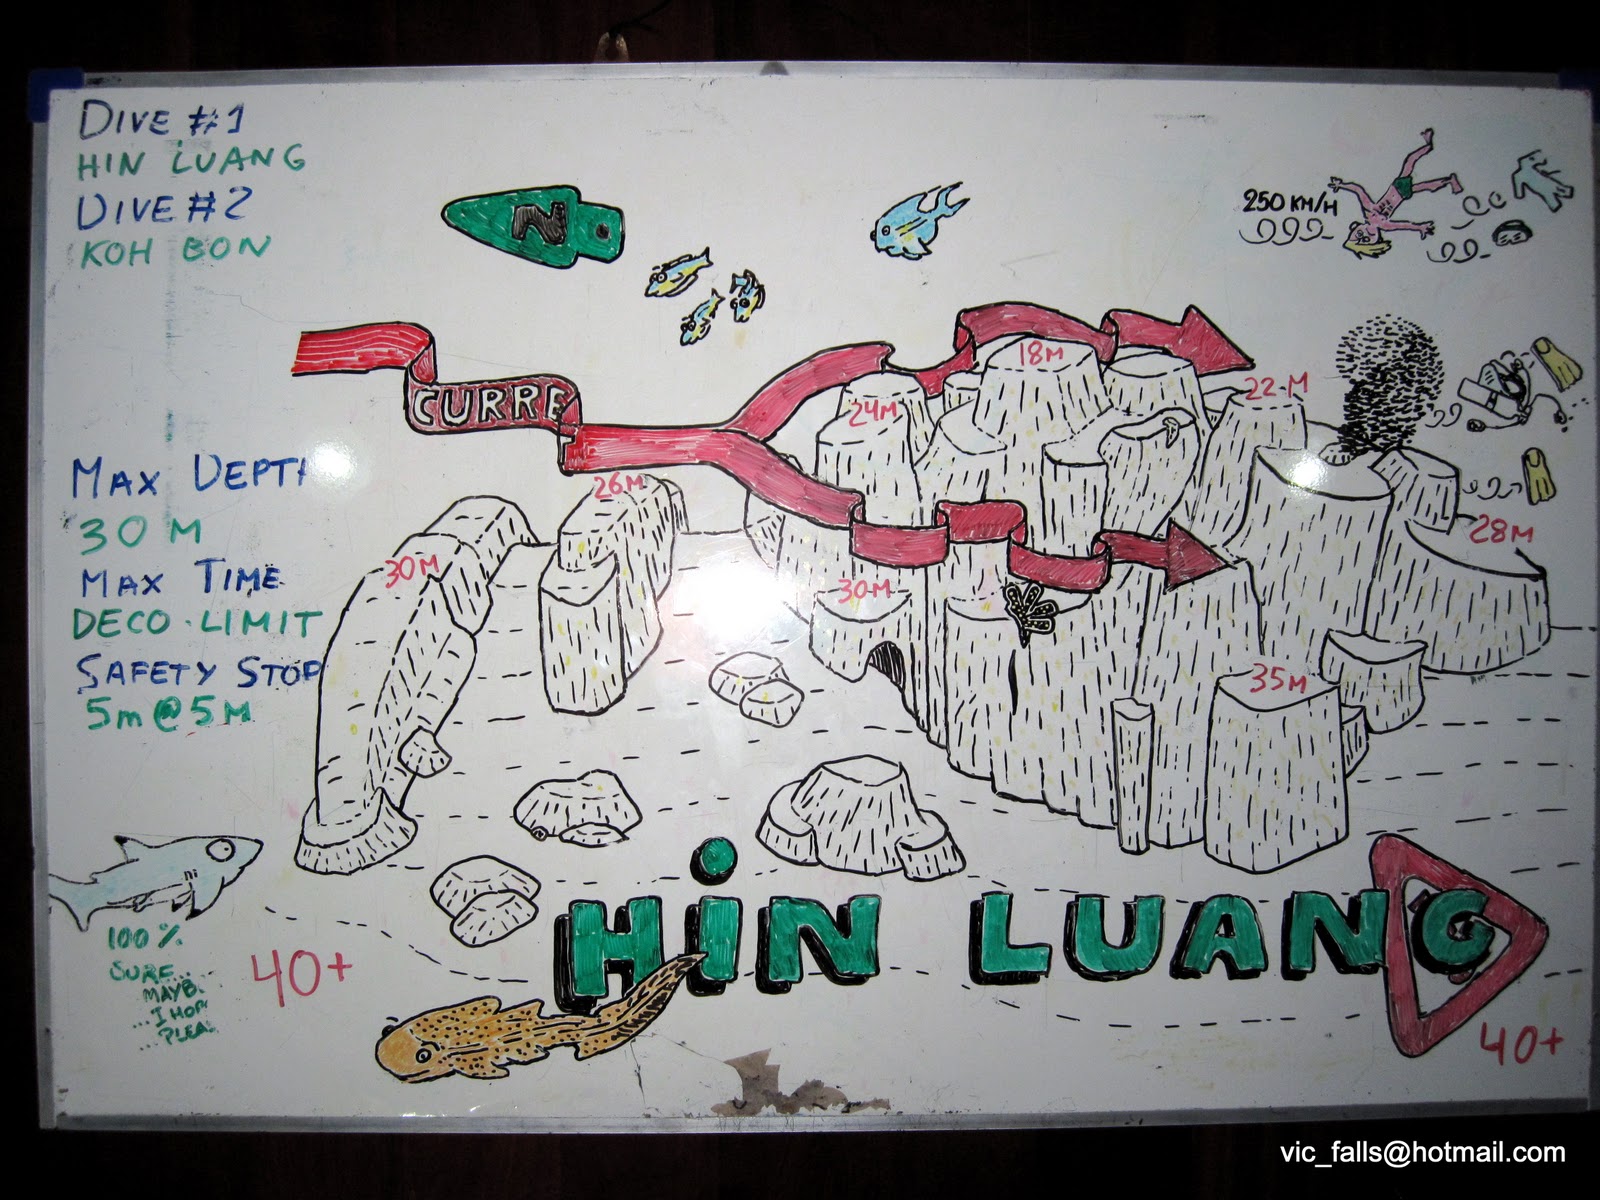 DIVE #1
HIN LUANG
DIVE #2
KOH BON
N
250 KM/H
CURRE
18M
24M
22M
26M
30M
30M
28M
35M
MAX DEPTH
30 M
MAX TIME
DECO. LIMIT
SAFETY STOP
5m@5M
100%
SURE...
MAYB.
...I HOP
...PLEA
40+
HiN LUANG
40+
vic_falls@hotmail.com